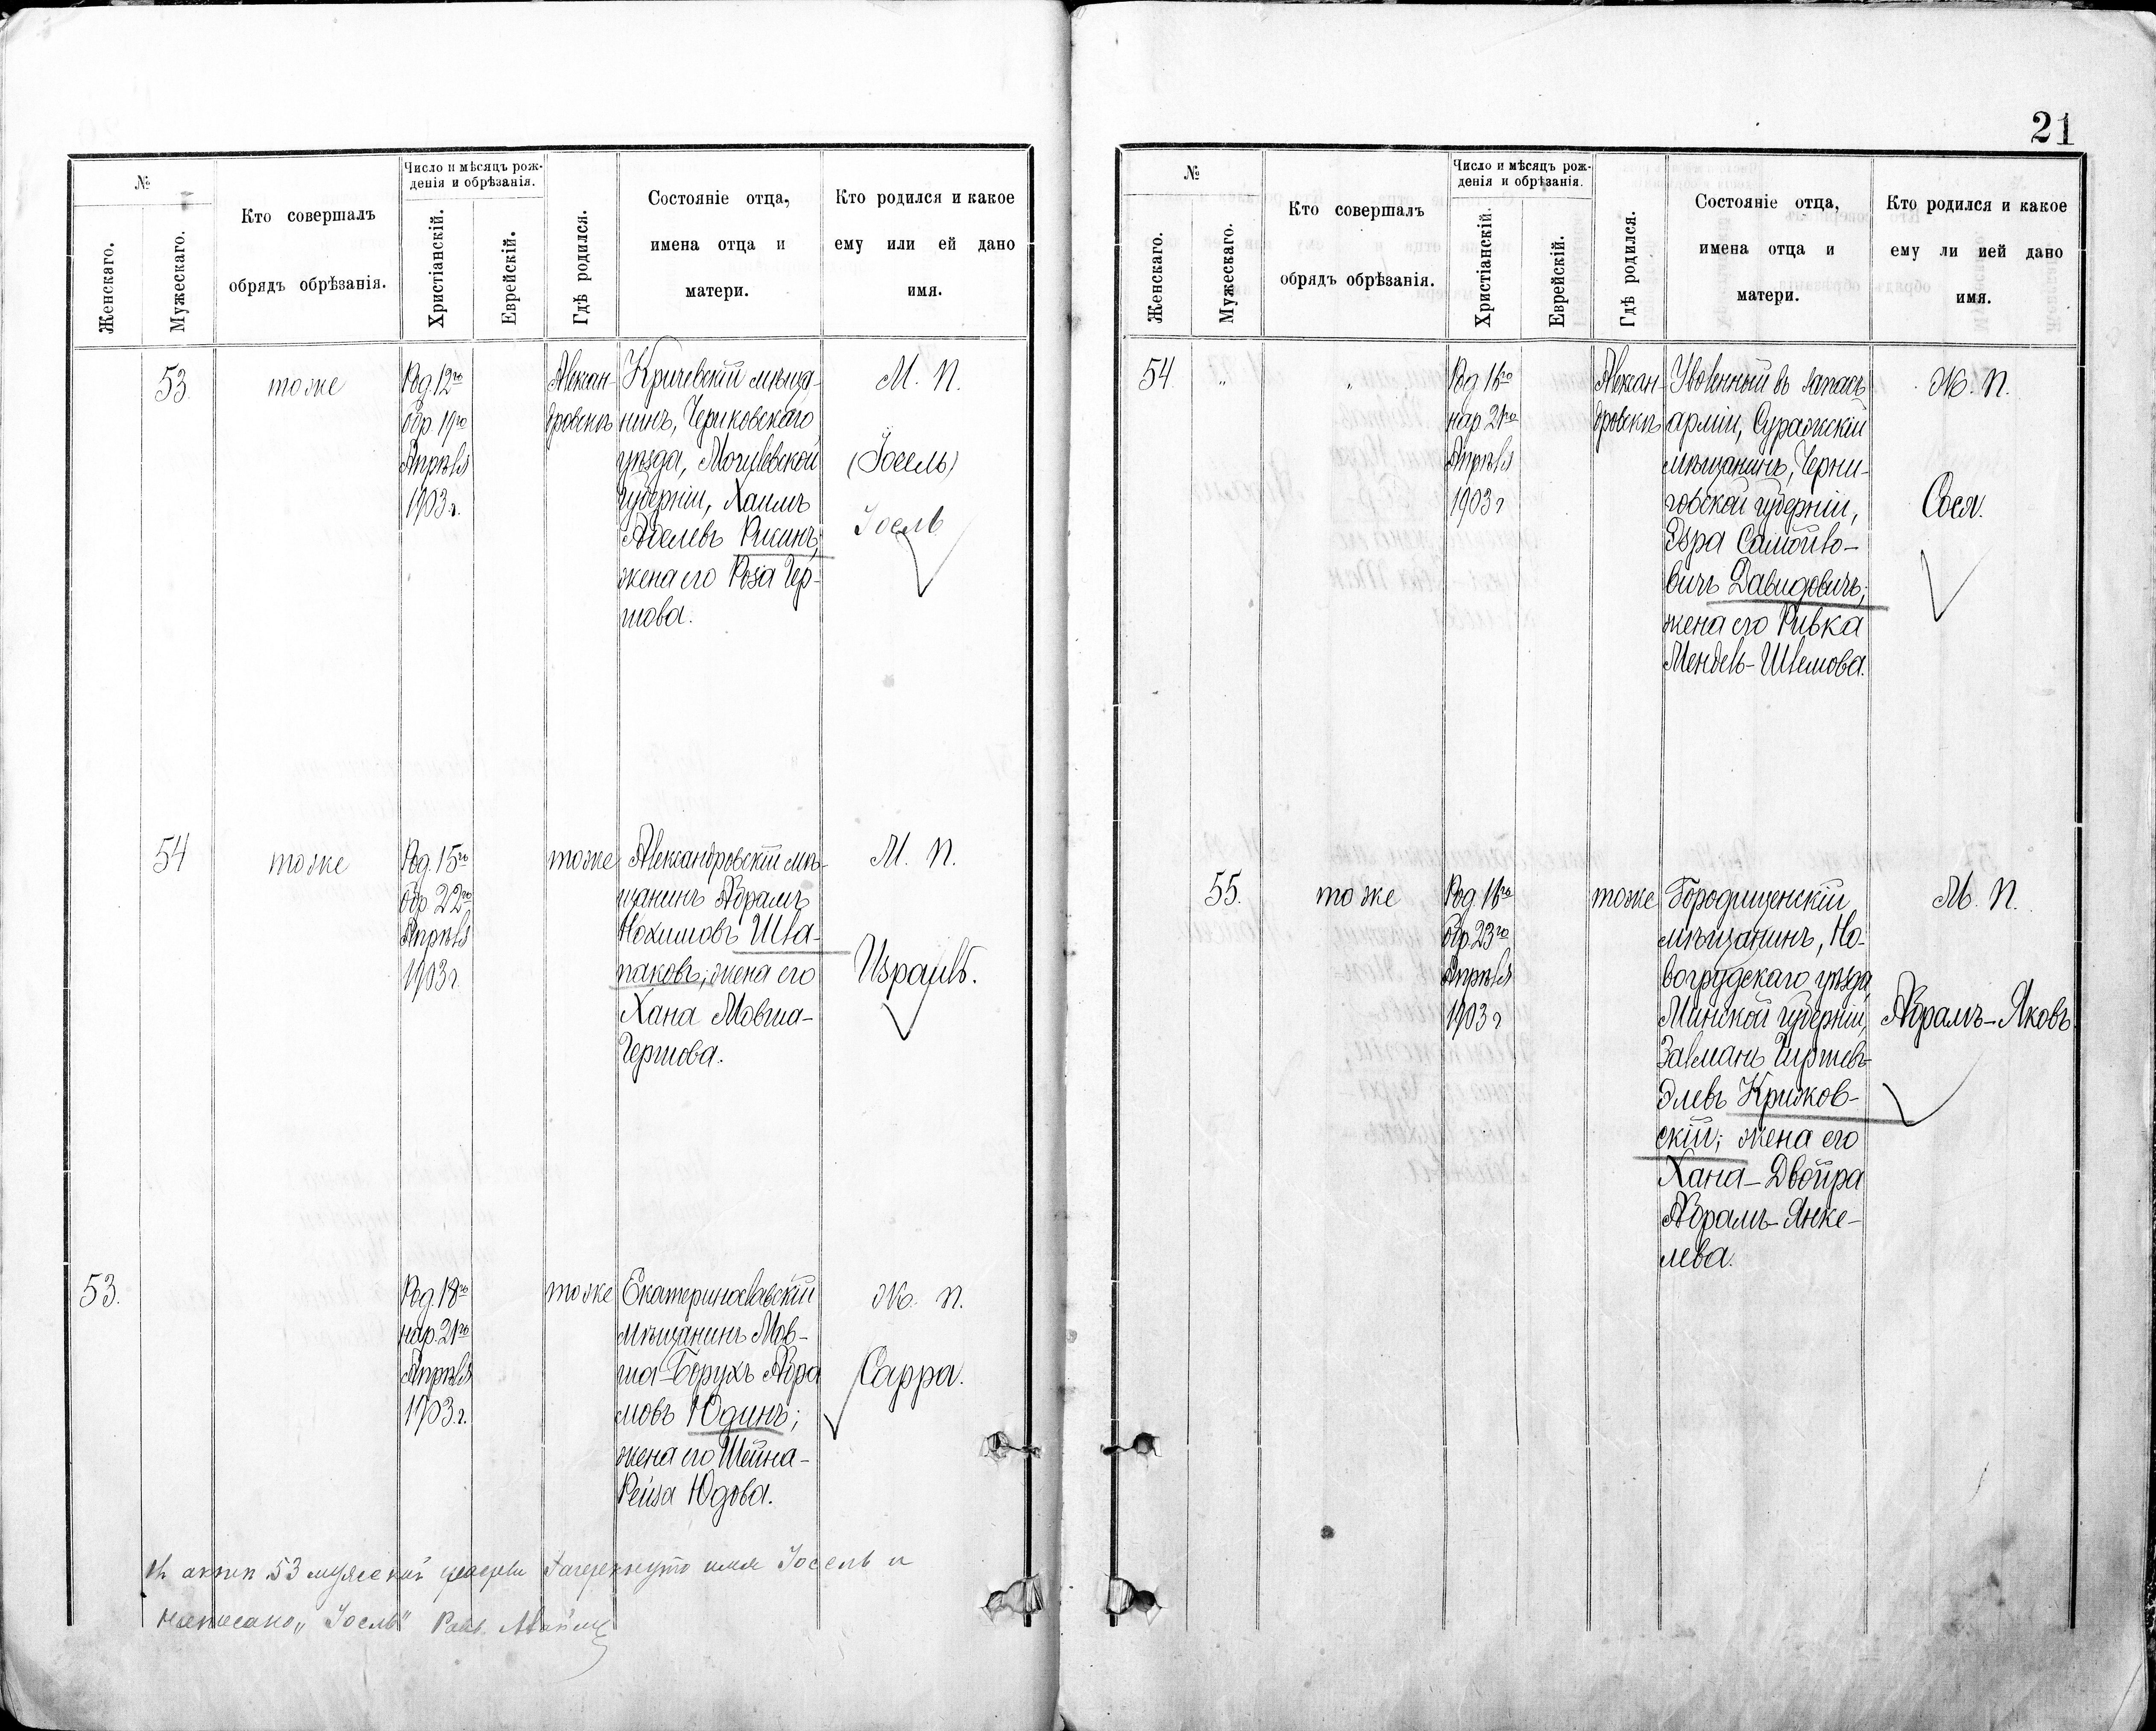 №
Женскаго.
Мужескаго.
Кто совершалъ
обрядъ обрѣзанія.
Число и мѣсяцъ рож-
денія и обрѣзанія.
Христіанскій.
Еврейскій.
Гдѣ родился.
Состояніе отца,
имена отца и
матери.
Кто родился и какое
ему или ей дано
имя.
53
тоже
Род. 12го
обр. 19го
Апрѣля
1903 г.
Алексан-
дровскъ
Кричевскій мѣща-
нинъ, Чериковскаго
уѣзда, Могилевской
губерніи, Хаимъ
Абелевъ Рискинъ;
жена его Роза Гер-
шова.
М. П.
(Іосель)
Іосль
54
тоже
Род. 15го
обр 22го
Апрѣля
1903 г
тоже
Александровскій мѣ-
щанинъ Абрамъ
Нохимовъ Шла-
паковъ; жена его
Хана Мовша-
Гершова.
М. П.
Израиль.
53.
Род. 18го
нар. 21го
Апрѣля
1903. г.
тоже
Екатеринославскій
мѣщанинъ Мов-
ша-Борухъ Абра
мовъ Юдинъ;
жена его Шейна-
Рейза Юдова.
Ж. П.
Сарра.
Въ актѣ 53 мужской зачеркнуто имя Іосель и
написано „Іосль" Равв.
21
№
Женскаго.
Мужескаго.
Кто совершалъ
обрядъ обрѣзанія.
Число и мѣсяцъ рож-
денія и обрѣзанія.
Христіанскій.
Еврейскій.
Гдѣ родился.
Состояніе отца,
имена отца и
матери.
Кто родился и какое
ему ли ией дано
имя.
54
"
"
Род 16го
нар 21го
Апрѣля
1903 г
Алексан-
дровскъ
Уволенный въ запасъ
арміи, Суражскій
мѣщанинъ, Черни-
говской губерніи,
Эзра Самойло-
вичъ Давидовичъ;
жена его Ривка
Мендель-Шлемова.
Ж. П.
Сося.
55.
тоже
Род. 16го
обр. 23го
Апрѣля
1903 г
тоже
Городищенскій
мѣщанинъ, Но-
вогрудскаго уѣзда
Минской губерніи,
Залманъ Гиршевъ-
Элевъ Крижов-
скій; жена его
Хана-Двойра
Абрамъ-Янке-
лева.
М. П.
Абрамъ-Яковъ